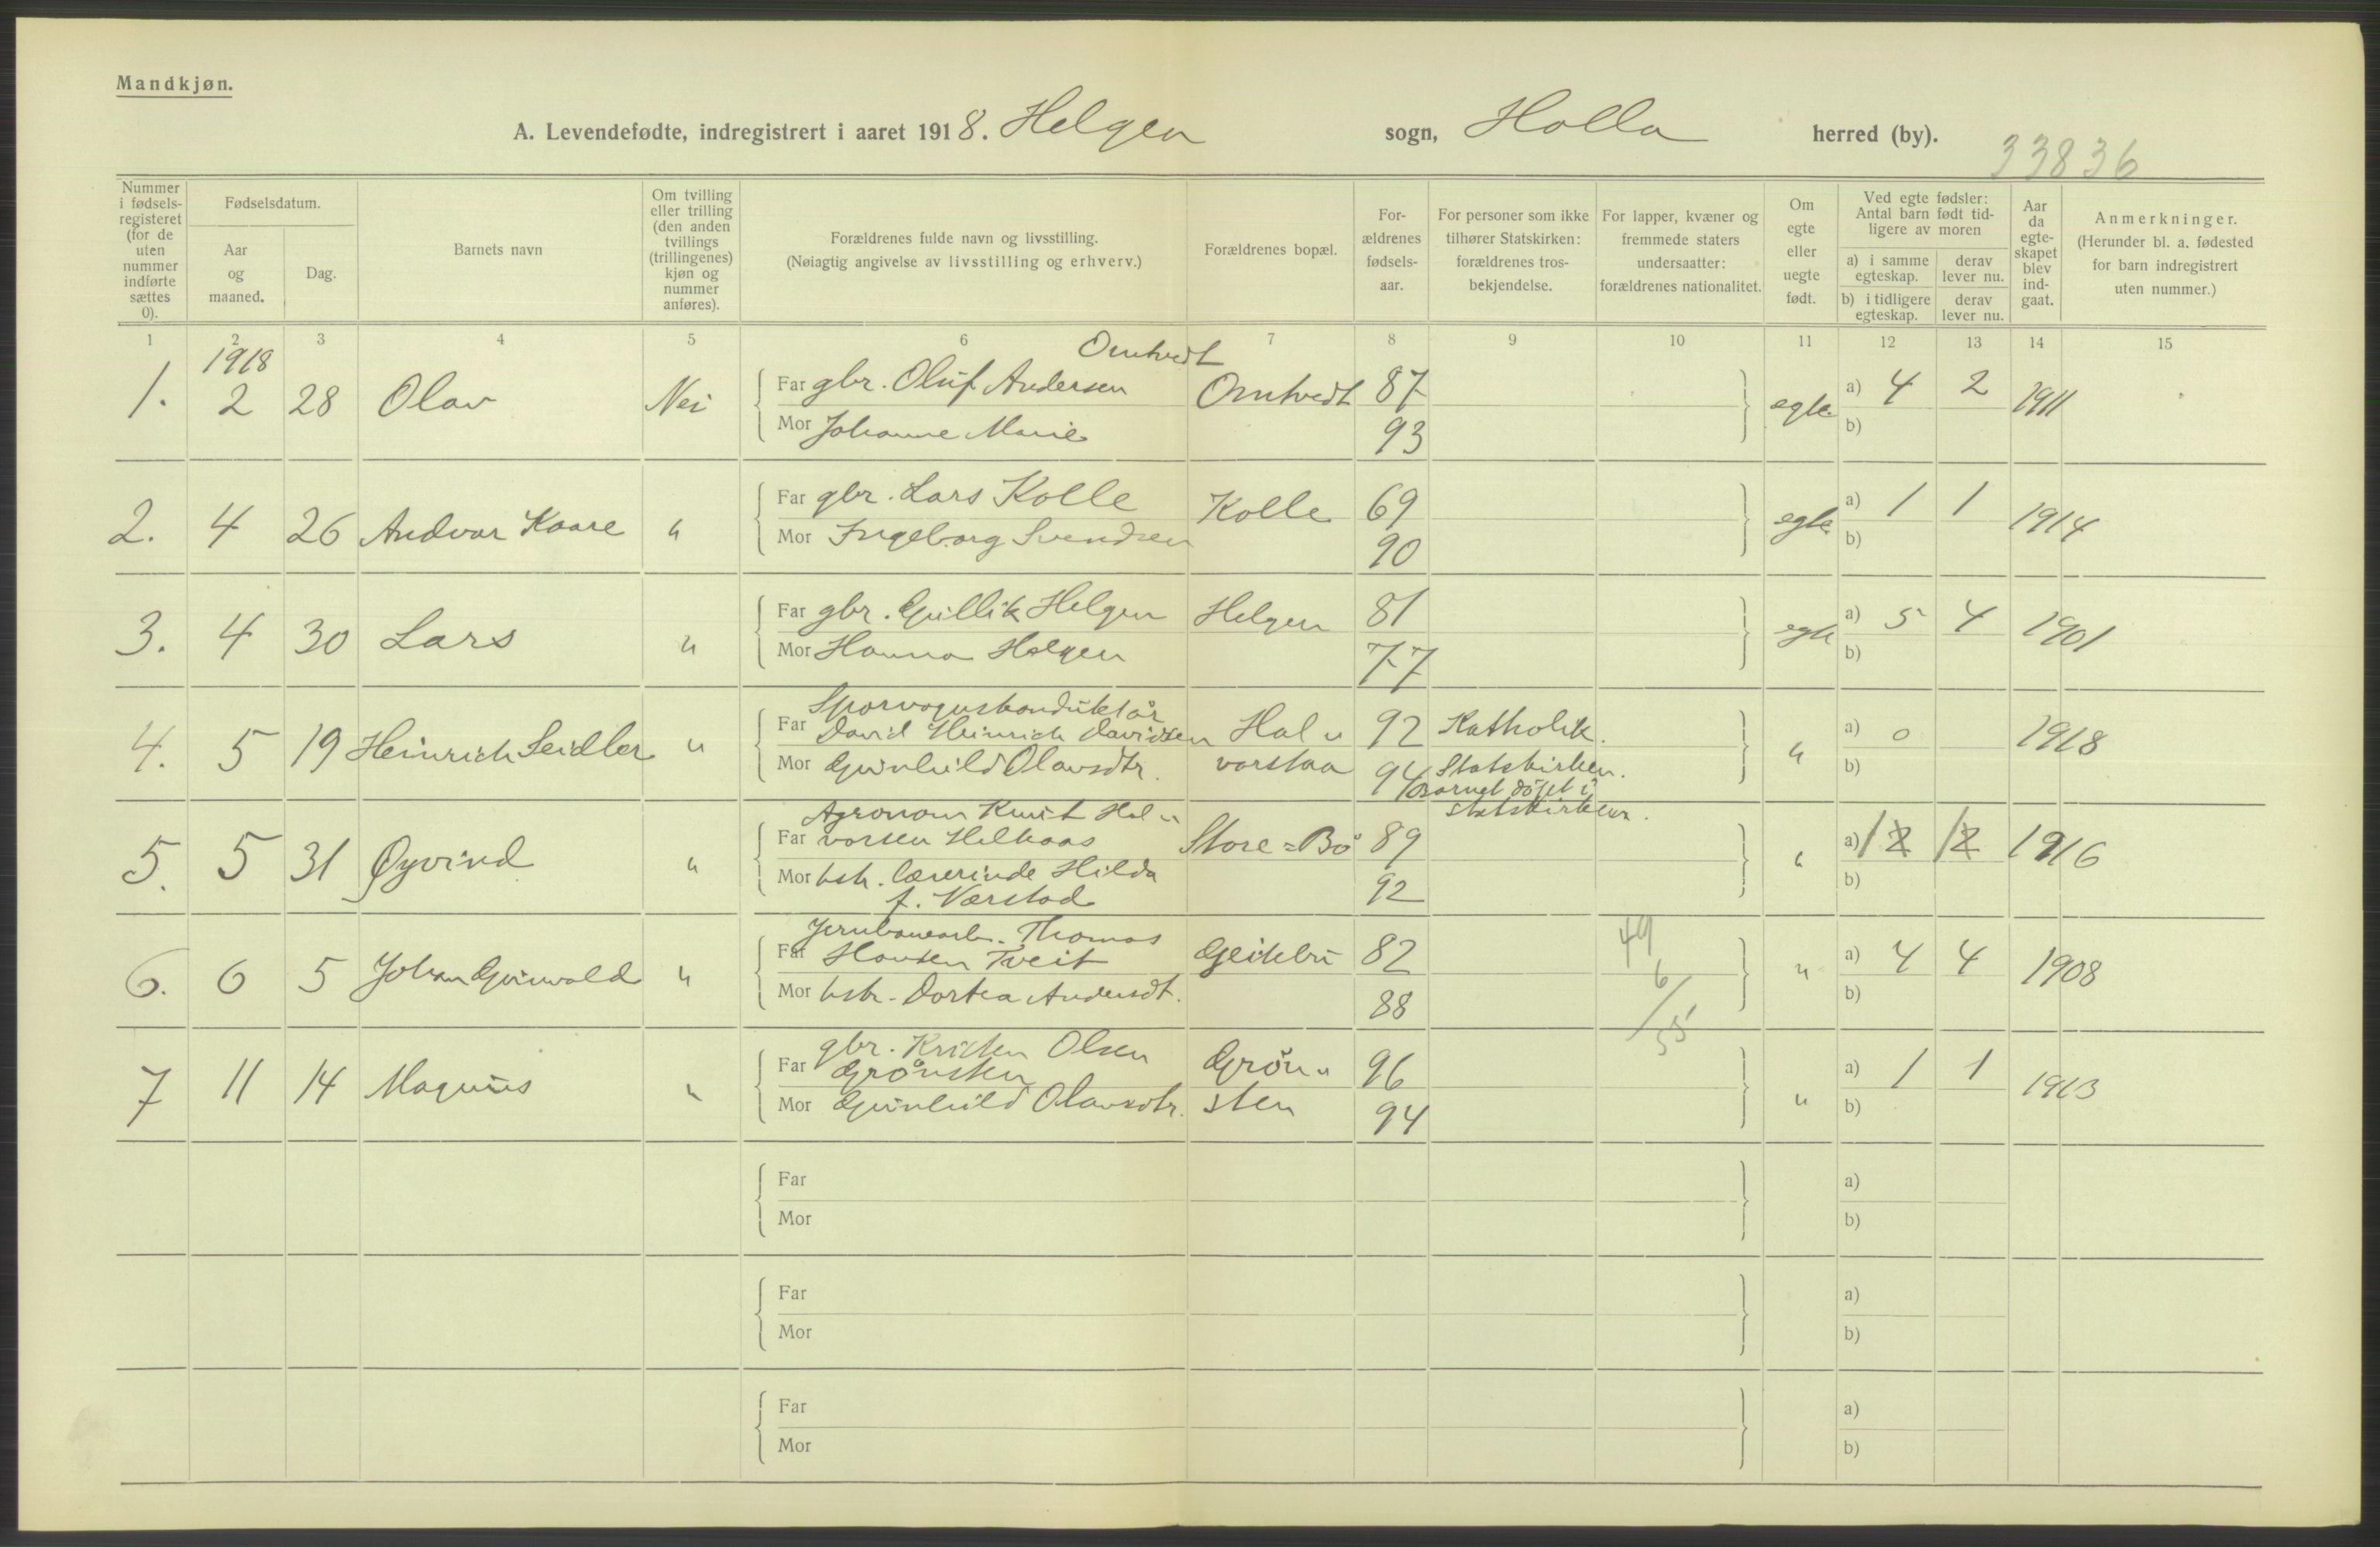 Mandkjøn.
A. Levendefødte, indregistrert i aaret 1918. Helgen sogn, Holla herred (by).
33836
Nummer i fødsels-registeret (for de uten nummer indførte sættes 0).
Fødselsdatum.
Aar og maaned.
Dag.
Barnets navn
Om tvilling eller trilling (den anden tvillings (trillingenes) kjøn og nummer anføres).
Forældrenes fulde navn og livsstilling.
(Nøiagtig angivelse av livsstilling og erhverv.)
Forældrenes bopæl.
For-ældrenes fødsels-aar.
For personer som ikke tilhører Statskirken: forældrenes tros-bekjendelse.
For lapper, kvæner og fremmede staters undersaatter: forældrenes nationalitet.
Om egte eller uegte født.
Ved egte fødsler: Antal barn født tid-ligere av moren
a) i samme egteskap.
derav lever nu.
b) i tidligere egteskap.
derav lever nu.
Aar da egte-skapet blev ind-gaat.
Anmerkninger.
(Herunder bl. a. fødested for barn indregistrert uten nummer.)
1 2 3 4 5 6 7 8 9 10 11 12 13 14 15
1918
Omtvedt
1. 2 28 Olav Nei Far gbr. Oluf Andersen Omtvedt 87 egte a) 4 2 1911
Mor Johanne Marie 93 b)
2. 4 26 Andvar Kaare " Far gbr. Lars Kolle Kolle 69 egte a) 1 1 1914
Mor Ingeborg Svendsen 90 b)
3. 4 30 Lars " Far gbr. Gullik Helgen Helgen 81 egte a) 5 4 1901
Mor Hanna Helgen 77 b)
Sporvognskonduktør
4. 5 19 Heinrich Seidler " Far David Heinrich Davidsen Hal" 92 Katholik. " a) 0 1918
Mor Gunhild Olavsdtr. varstaa 94 Statskirken. b)
Barnet døpt i
Statskirken.
Agronom Knut Hal"
5. 5 31 Øyvind " Far vorsen Helkaas Store=Bø 89 " a) 1 2 1 2 1916
Mor hstr. lærerinde Hilda 92 b)
f. Værstad
Jernbanearb. Thomas
6. 6 5 Johan Gunvald " Far Hansen Tveit Geitebu 82 49 " a) 4 4 1908
Mor hstr. Dortea Andersdt. 88 6/55 b)
gbr. Kristen Olsen
7 11 14 Magnus " Far Grønsten Grøn" 96 " a) 1 1 1913
Mor Gunhild Olavsdtr. sten 94 b)
Far a)
Mor b)
Far a)
Mor b)
Far a)
Mor b)